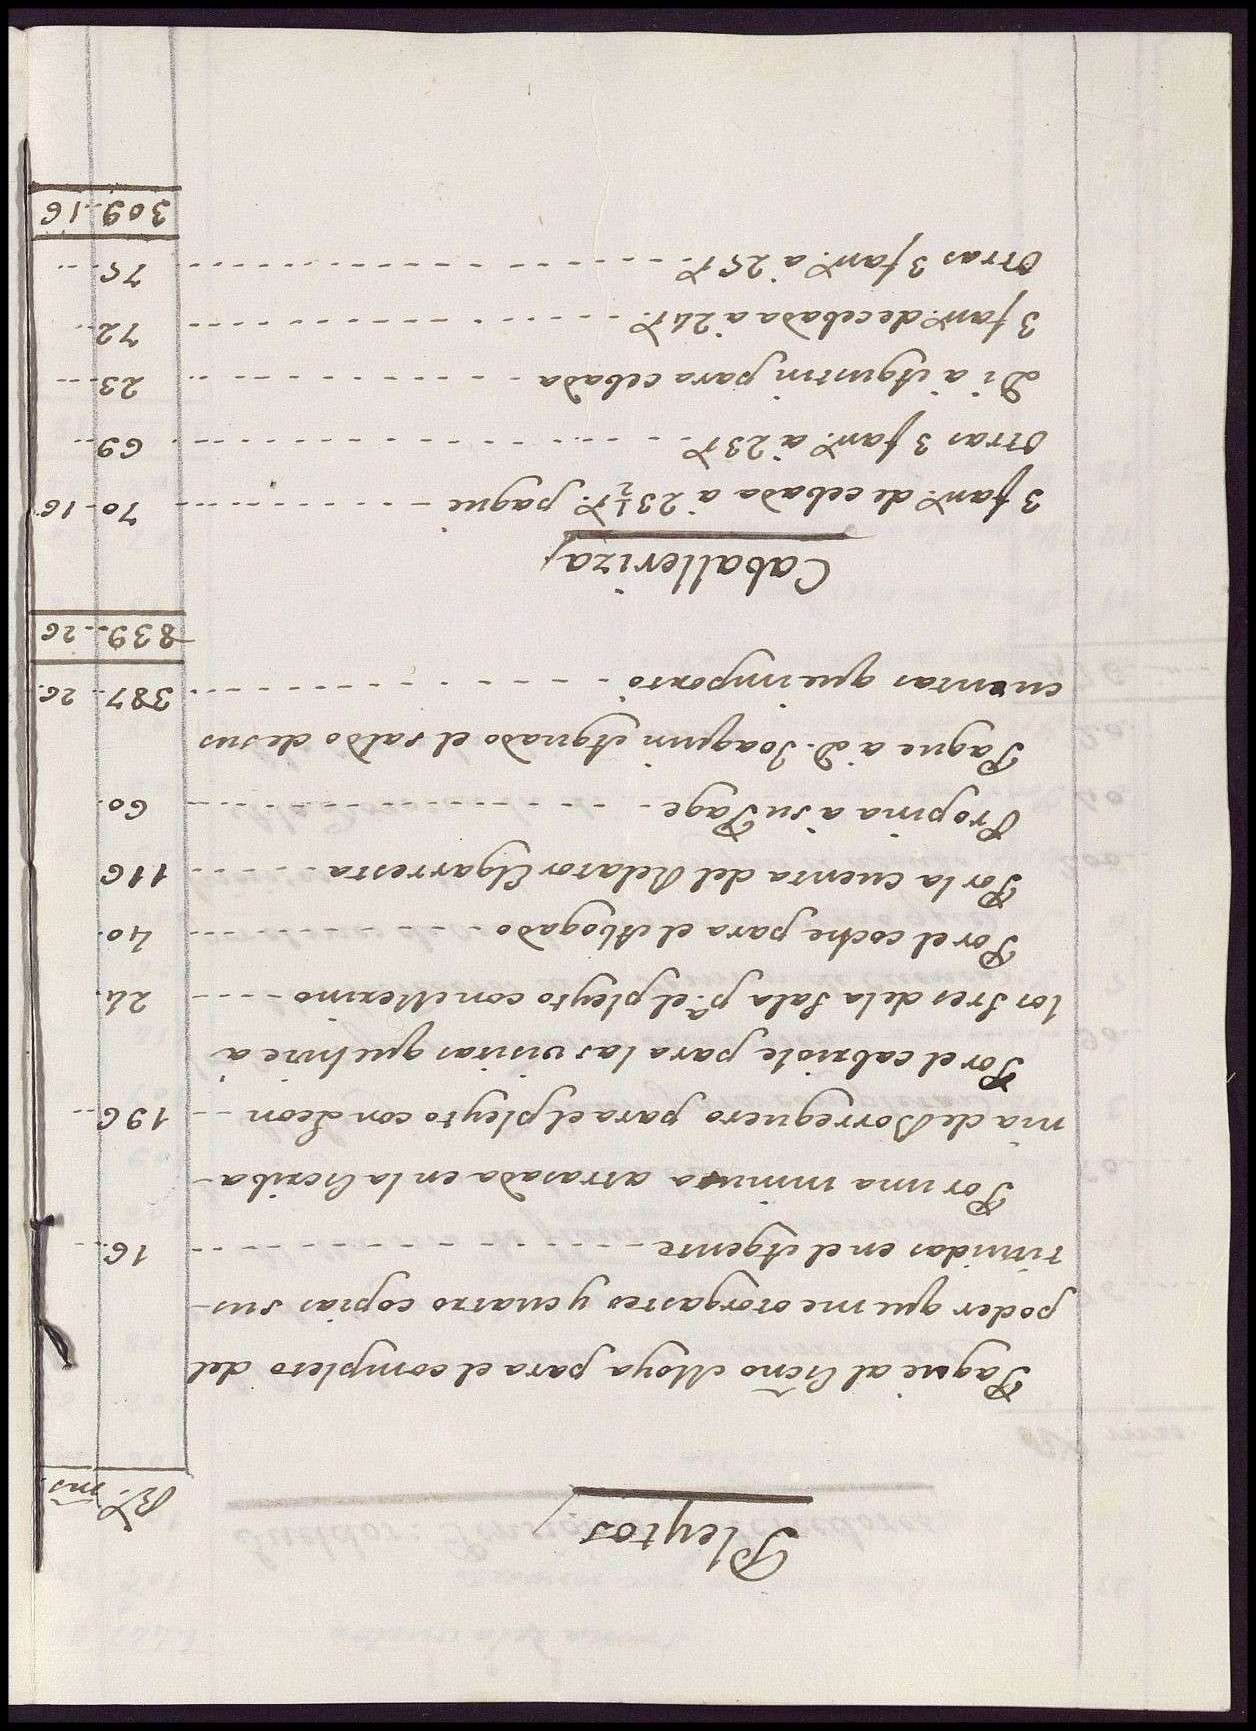 Pleytos
Rs. ms
Pague al Escno Moya para el completo del
poder que me otorgastes y cuatro copias sus-
tituidas en el Agente 16
Por una minuta atrasada en la Escriba-
nia de Borreguero para el pleyto con Leon 196
Por el cabriole para las visitas que hice a
los Sres de la Sala pa. el pleyto con Merino 24
Por el coche para el Abogado 40
Por la cuenta del Relator Elgarresta 116
Propina a su Page 60
Pague a D. Joaquin Aguado el saldo de sus
cuentas que importó 387 26
839 26
Caballeriza
3 fans. de cebada a 23 1/2 rs. pague 70 16
Otras 3 fans. a 23 rs 69
Di a Agustin para cebada 23
3 fans. de cebada a 24 rs 72
Otras 3 fans. a 25 rs 75
309 16